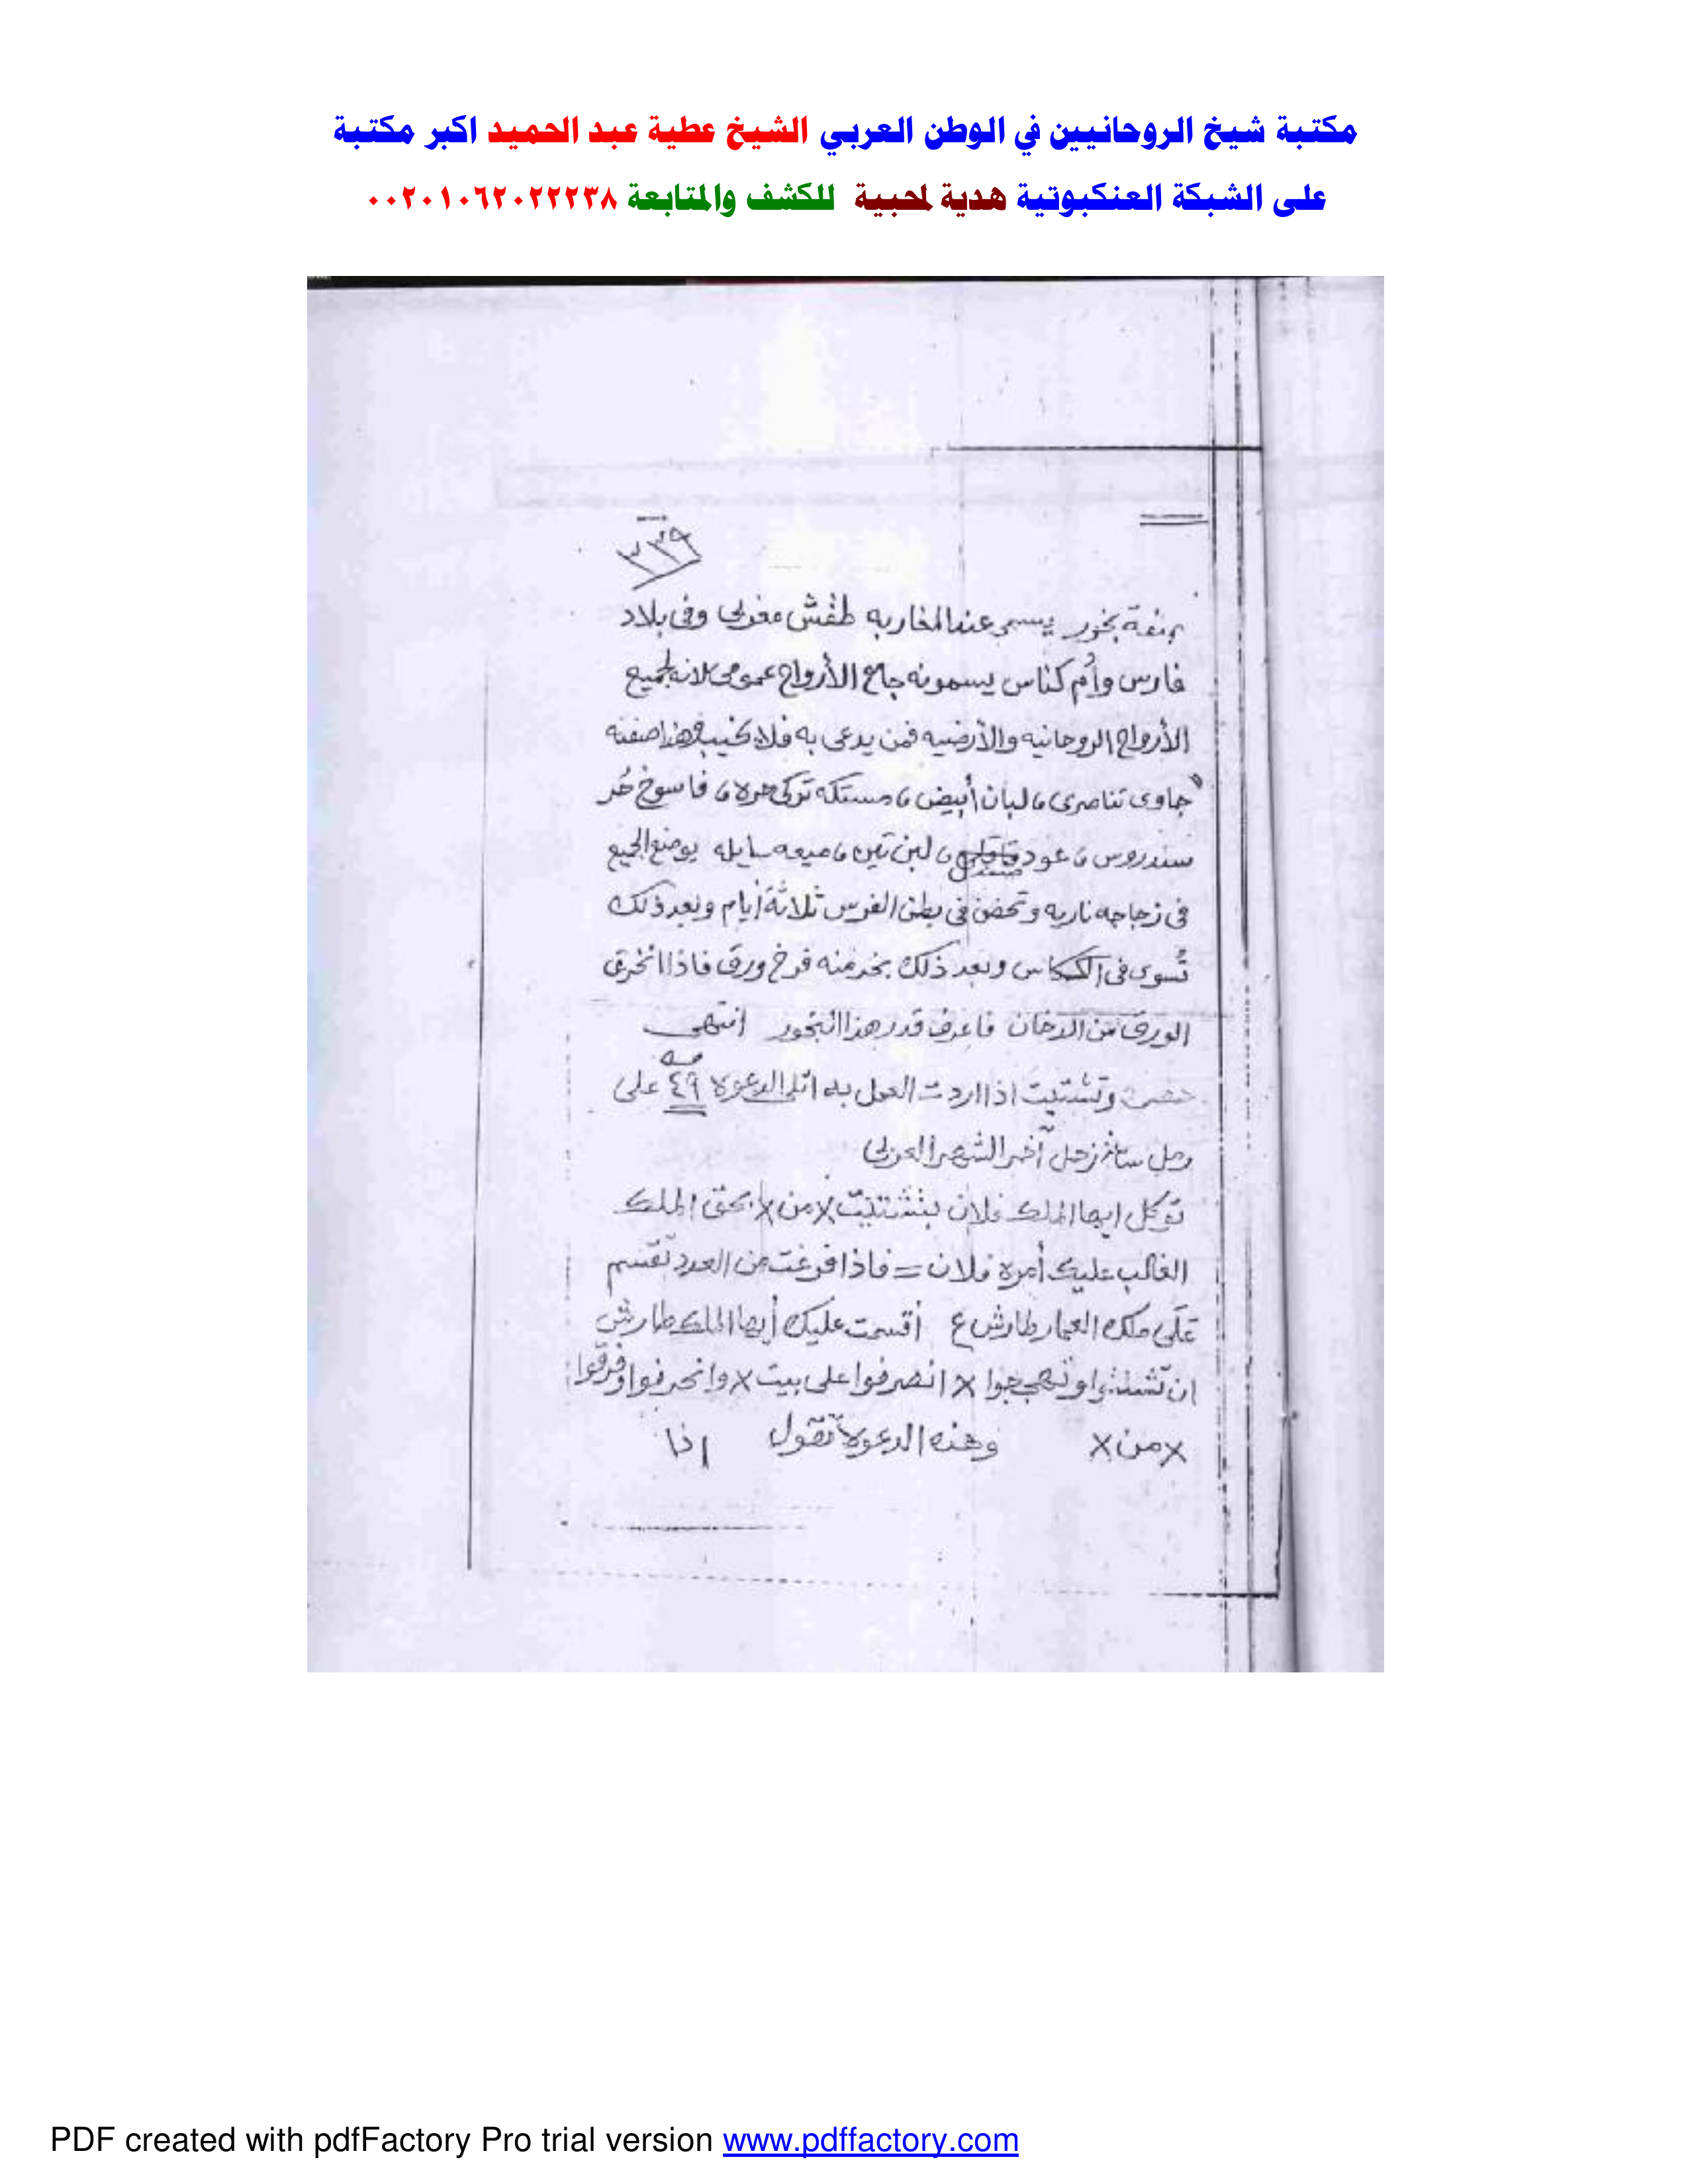 مكتبة شيخ الروحانيين في الوطن العربي الشيخ عطية عبد الحميد اكبر مكتبة
على الشبكة العنكبوتية هدية لمحبية للكشف والمتابعة ٠٠٢٠١٠٦٢٠٢٢٢٣٨
٣٣٩
صفة بخور يسمى عند المغاربه طقش مغربى وفى بلاد
فارس وأم كناس يسمونه جامع الأرواح عمومى لانه لجميع
الأرواح الروحانيه والأرضيه فمن يدعى به فلا يخيب وهذا صفته
جاوى تناصرى ، لبان أبيض ، مستكه تركى حره ، فاسوخ حُر
سندروس ، عود ، لبن تين ، ميعه سايله يوضع الجميع
فى زجاجه ناريه وتحضن فى بطن الفرس ثلاثة أيام وبعد ذلك
تُسوى فى وبعد ذلك بخر منه فرخ ورق فاذا انخرق
الورق من الدخان فاعرف قدر هذا البخور انتهى
وتشتيت اذا اردت العمل به اتلى الدعوة ٤٩ مره على
رمل ساعة زحل آخر الشهر العربى
توكل ايها الملك فلان بتشتيت × من × بحق الملك
الغالب عليك أمره فلان = فاذا فرغت من العدد تقسم
على ملك العمار طارش ع أقسمت عليك أيها الملك طارش
ان تشتتوا وتهيجوا × انصرفوا على بيت × وانحرفوا وفرقوا
× من × وهذه الدعوة تقول اذا
PDF created with pdfFactory Pro trial version www.pdffactory.com